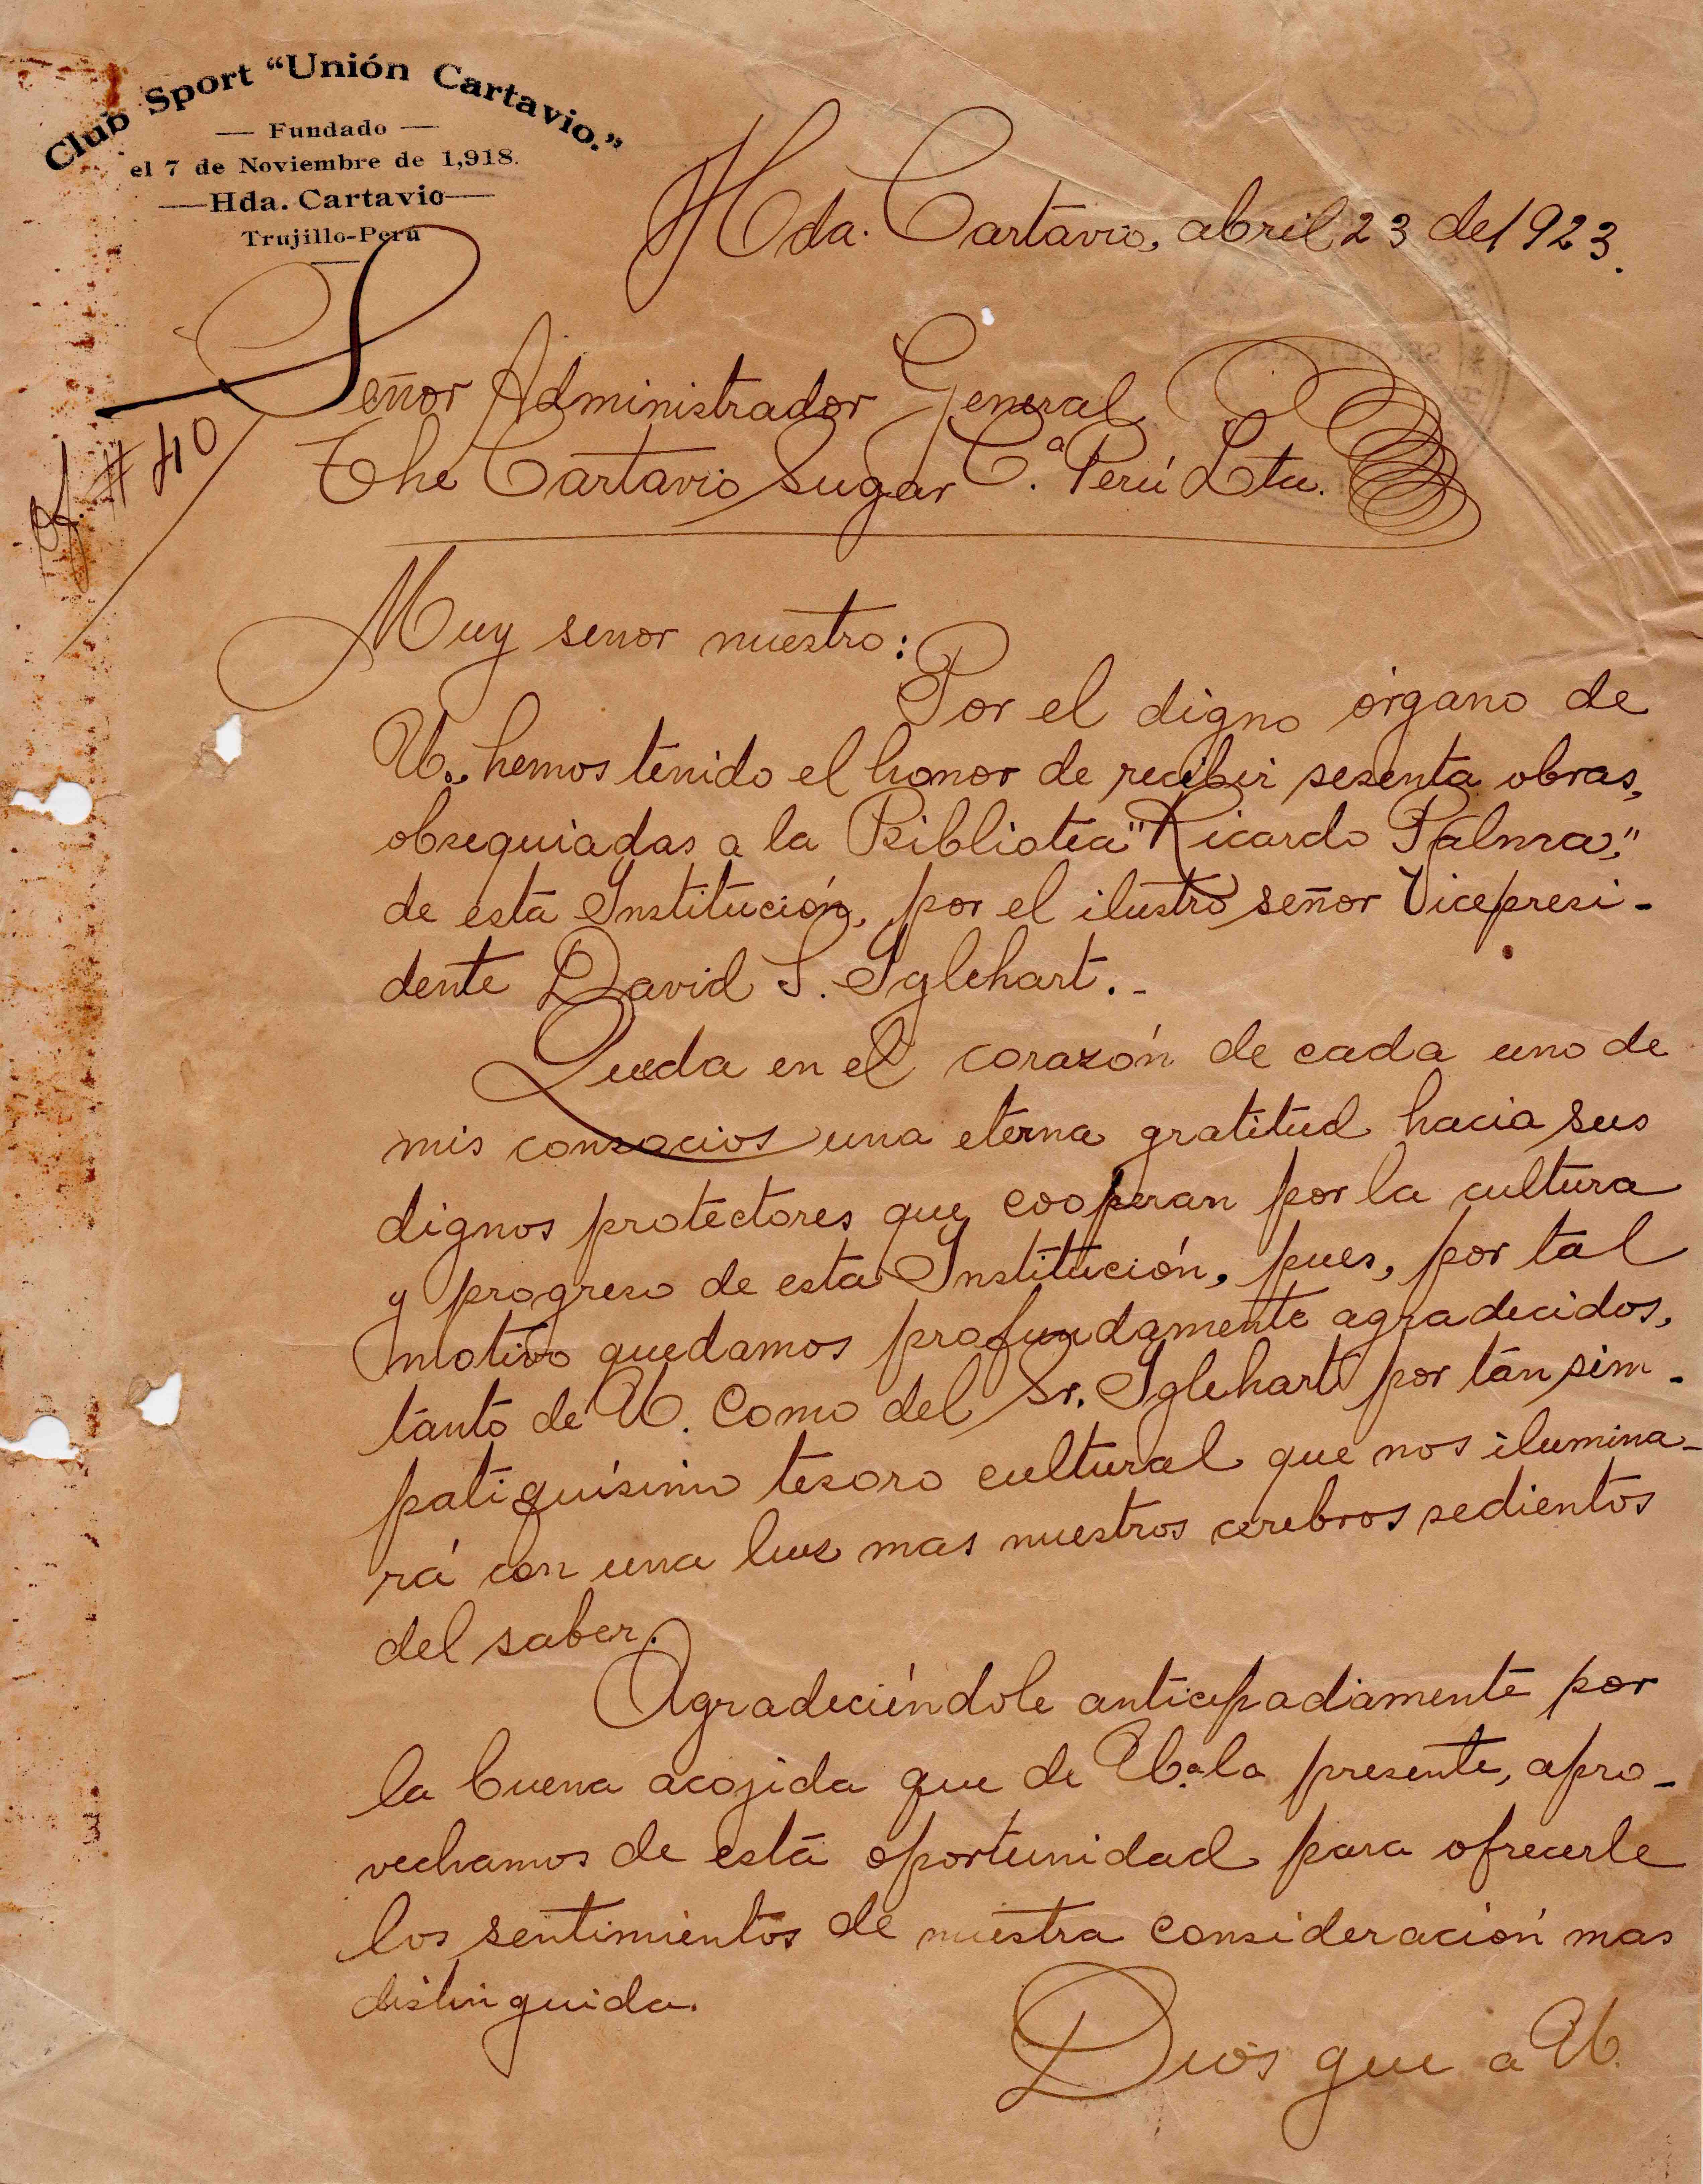 Club Sport “Unión Cartavio.”
— Fundado —
el 7 de Noviembre de 1,918.
—Hda. Cartavio—
Trujillo-Perú
Hda. Cartavio, abril 23 de 1923.
Señor Administrador General
The Cartavio Sugar Cª. Perú Lta.
Of. # 40
Muy senor nuestro:
Por el digno órgano de
U. hemos tenido el honor de recibir sesenta obras,
obsequiadas a la Bibliotea "Ricardo Palma,"
de esta Institución, por el ilustre señor Vicepresi-
dente David S. Iglehart.-
Queda en el corazón de cada uno de
mis consocios una eterna gratitud hacia sus
dignos protectores que cooperan por la cultura
y progreso de esta Institución, pues, por tal
motivo quedamos profundamente agradecidos,
tanto de U. como del Sr. Iglehart por tan sim-
patiquísimo tesoro cultural que nos ilumina-
rá con una luz mas nuestros cerebros sedientos
del saber.
Agradeciéndole anticipadiamente por
la buena acojida que de U. a la presente, apro-
vechamos de esta oportunidad para ofrecerle
los sentimientos de nuestra consideración mas
distinguida.
Dios gue a U.